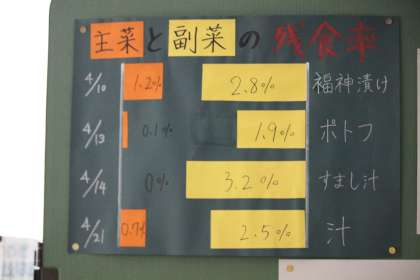 主菜と副菜の残食率
4/10 1.2% 2.8% 福神漬け
4/13 0.1% 1.9% ポトフ
4/14 0% 3.2% すまし汁
4/21 0.7% 2.5% 汁